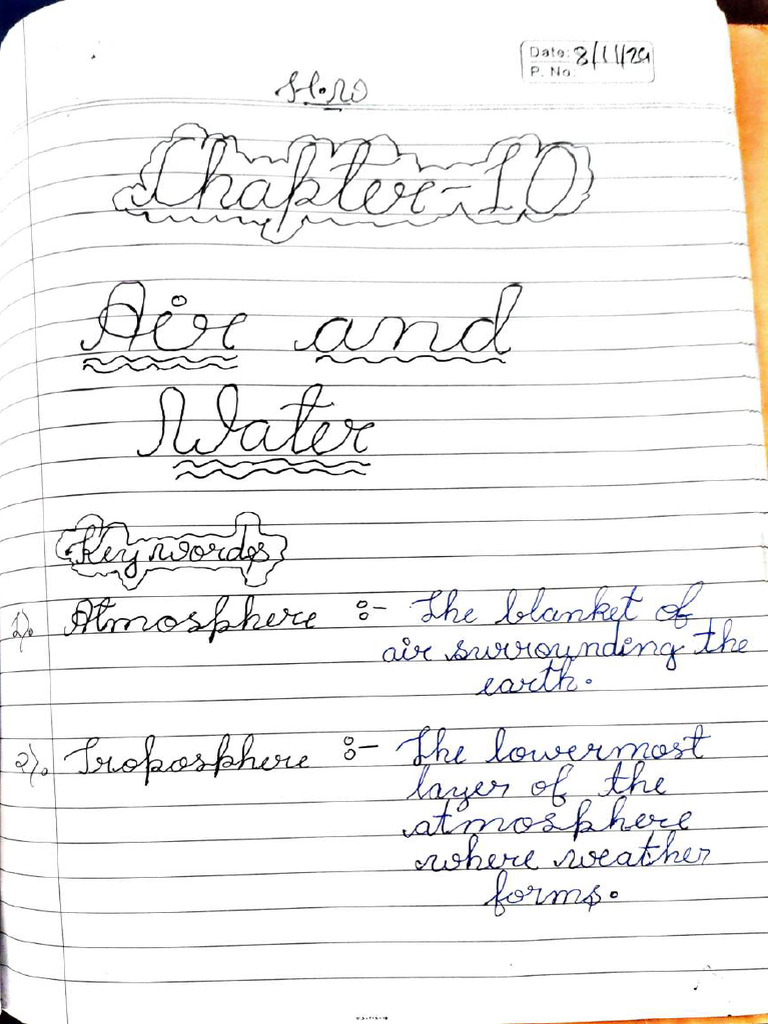 Date: 8/11/24
P. No:
H.W
Chapter-10
Air and
Water
Key words
1). Atmosphere :- The blanket of
air surrounding the
earth.
2). Troposphere :- The lowermost
layer of the
atmosphere
where weather
forms.